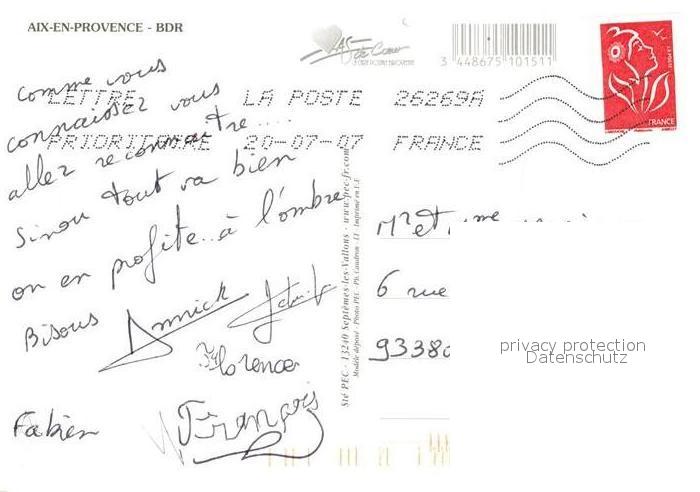 AIX-EN-PROVENCE - BDR
AS de Coeur
3 448675 101511
FRANCE
LETTRE LA POSTE 26269A
PRIORITAIRE 20-07-07 FRANCE
comme vous
connaissez vous
allez reconnaitre....
Sinon tout va bien
on en profite..à l'ombre
Bisous Annick
Florence
Fabien François
Sté PEC - 13240 Septèmes-les-Vallons - www.pec-fr.com
Modèle déposé - Photo PEC - Ph. Caudron - LI - Imprimé en U.E
Mr et Mme
6 rue
93380
privacy protection
Datenschutz